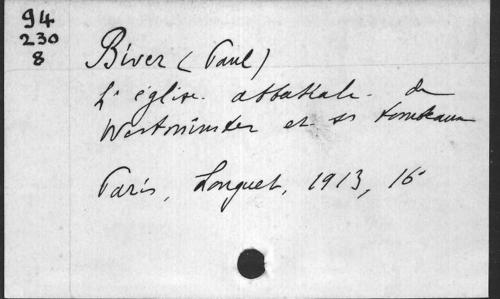 94
230
8
Biver (Paul)
L'église abbatiale de
Westminster et ses tombeaux
Paris, Longuet, 1913, 16°